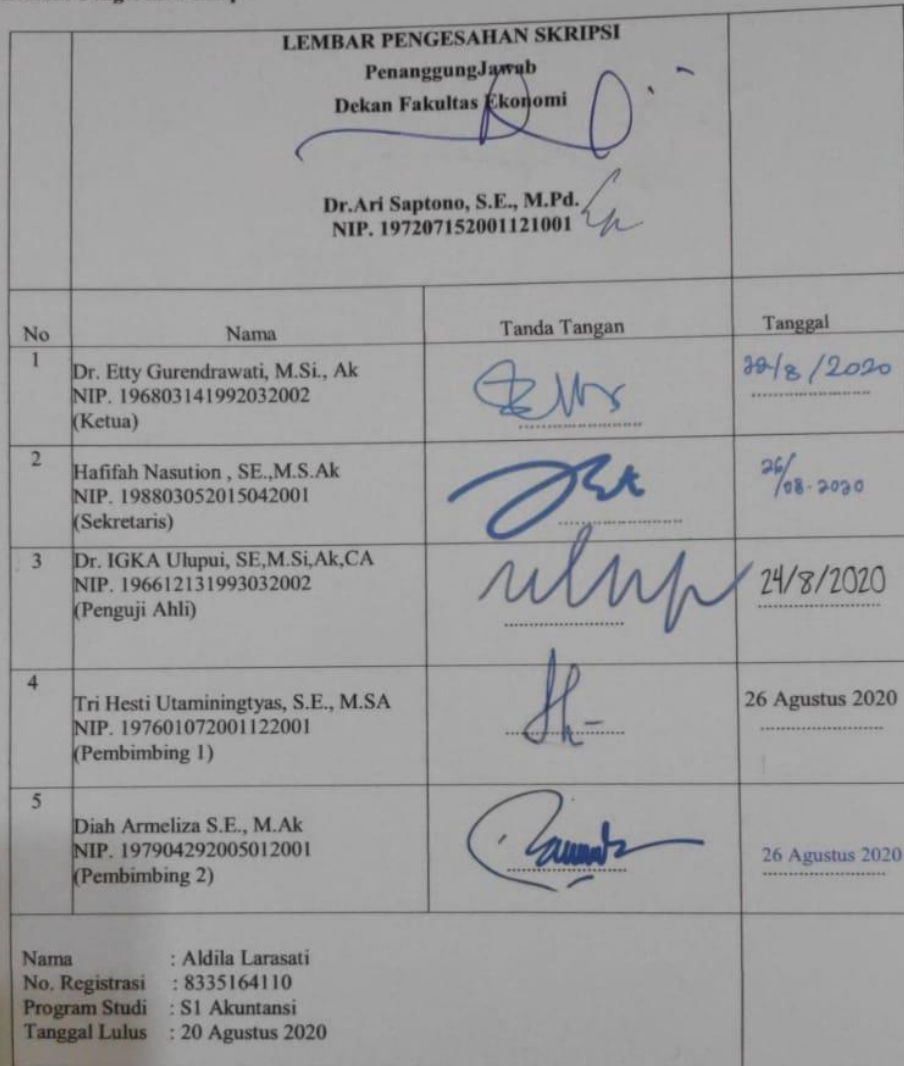 LEMBAR PENGESAHAN SKRIPSI
PenanggungJawab
Dekan Fakultas Ekonomi
Dr.Ari Saptono, S.E., M.Pd.
NIP. 197207152001121001
No Nama Tanda Tangan Tanggal
1 Dr. Etty Gurendrawati, M.Si., Ak
NIP. 196803141992032002
(Ketua)
/8/2020
2 Hafifah Nasution , SE.,M.S.Ak
NIP. 198803052015042001
(Sekretaris)
26/08-2020
3 Dr. IGKA Ulupui, SE,M.Si,Ak,CA
NIP. 196612131993032002
(Penguji Ahli)
24/8/2020
4 Tri Hesti Utaminingtyas, S.E., M.SA
NIP. 197601072001122001
(Pembimbing 1)
26 Agustus 2020
5 Diah Armeliza S.E., M.Ak
NIP. 197904292005012001
(Pembimbing 2)
26 Agustus 2020
Nama : Aldila Larasati
No. Registrasi : 8335164110
Program Studi : S1 Akuntansi
Tanggal Lulus : 20 Agustus 2020